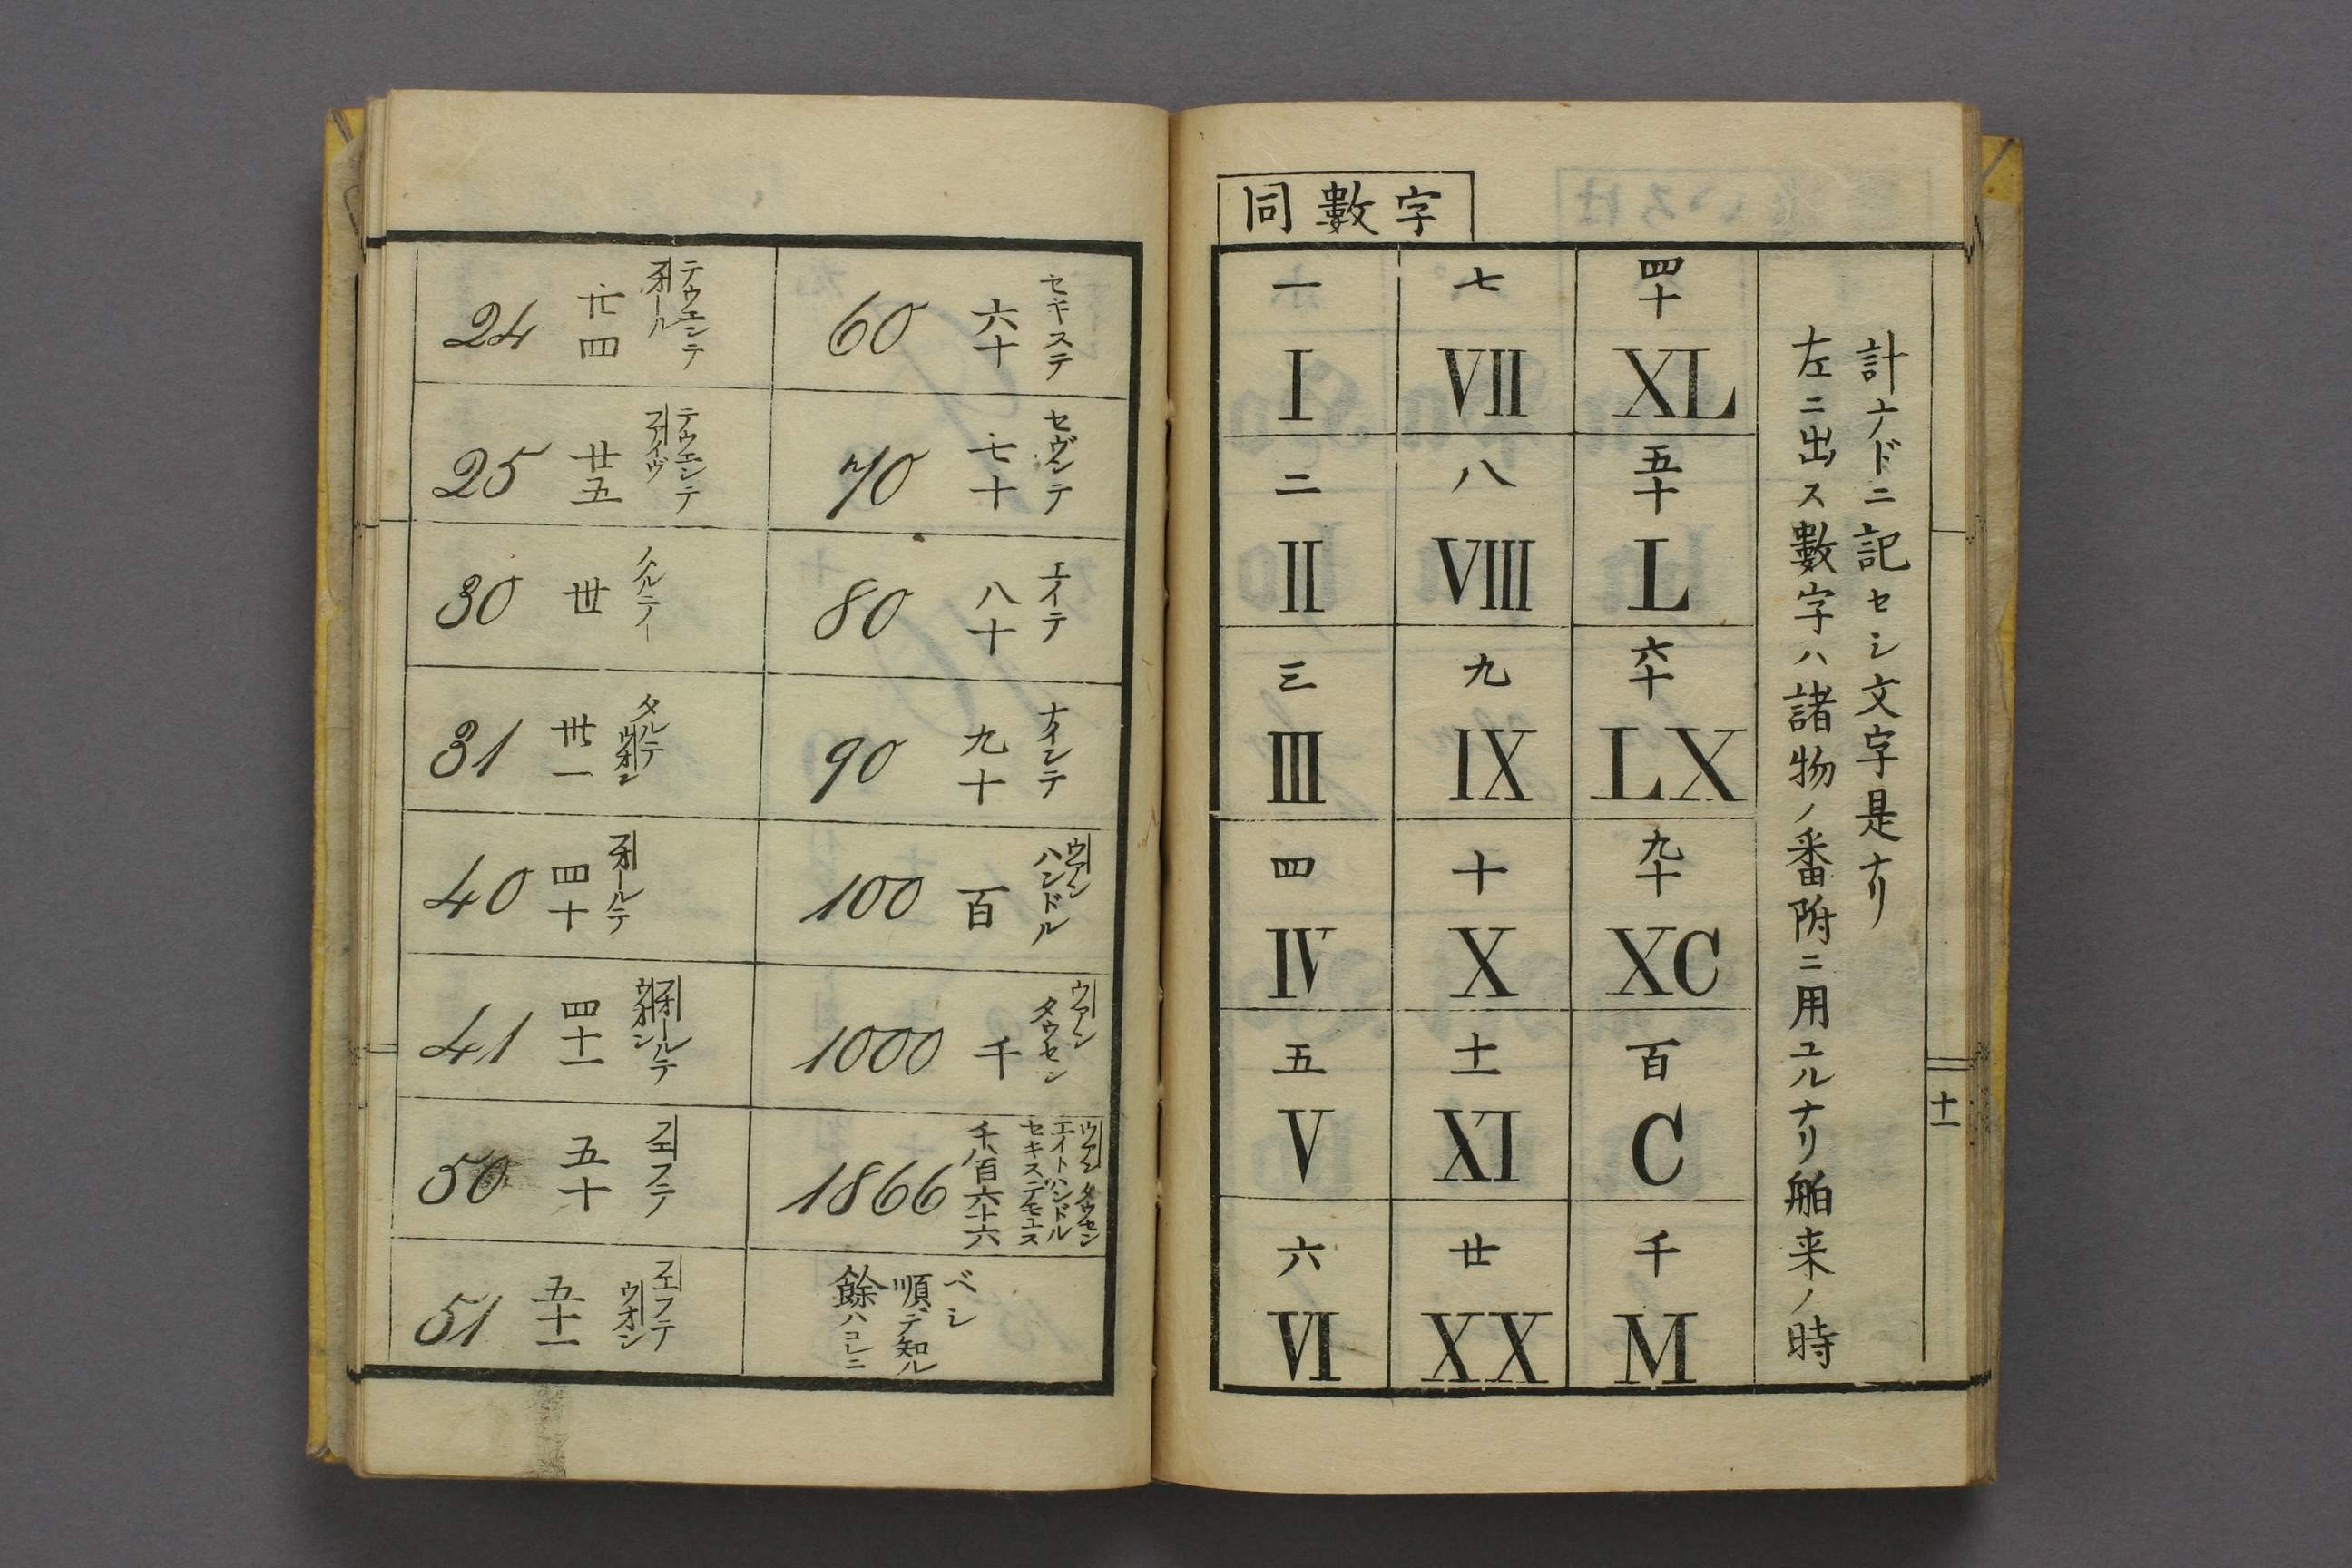 24
廿四
テウエンテ
フオール
25
廿五
テウエンテ
フアイヴ
30
丗
31
丗一
タルテ
ウオン
40
四十
フオールテ
41
四十一
フオールテ
ウオン
50
五十
フエフテ
51
五十一
フエフテ
ウオン
60
六十
セキステ
70
七十
セヴンテ
80
八十
エイテ
90
九十
ナインテ
100
百
ウアン
ハンドル
1000
千
ウアン
タウセン
1866
千八百六十六
ウアンタウセン
エイトハンドル
餘ハコレニ
順デ知ル
ベシ
同數字
一
I
二
II
三
III
四
IV
五
V
六
VI
七
VII
八
VIII
九
IX
十
X
十一
XI
廿
XX
四十
XL
五十
L
六十
LX
九十
XC
百
C
千
M
左ニ出ス數字ハ諸物ノ番附ニ用ユルナリ舶来ノ時
計ナドニ記セシ文字是ナリ
十一